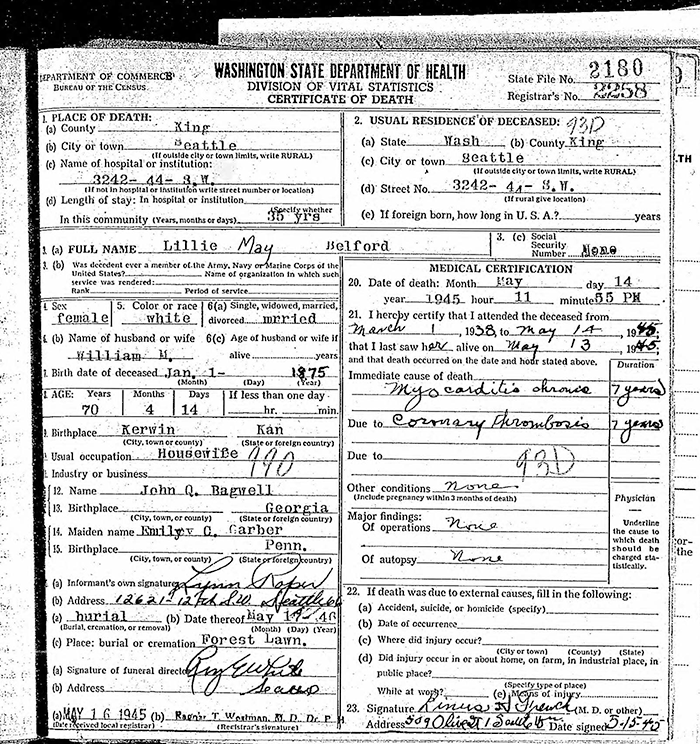 DEPARTMENT OF COMMERCE
BUREAU OF THE CENSUS
WASHINGTON STATE DEPARTMENT OF HEALTH
DIVISION OF VITAL STATISTICS
CERTIFICATE OF DEATH
State File No. 2180
Registrar's No. 2258
1. PLACE OF DEATH:
(a) County King
(b) City or town Seattle
(If outside city or town limits, write RURAL)
(c) Name of hospital or institution:
3242- 44- S.W.
(If not in hospital or institution write street number or location)
(d) Length of stay: In hospital or institution
(Specify whether
In this community (Years, months or days) 35 yrs
2. USUAL RESIDENCE OF DECEASED: 93D
(a) State Wash (b) County King
(c) City or town Seattle
(If outside city or town limits, write RURAL)
(d) Street No. 3242- 44- S.W.
(If rural give location)
(e) If foreign born, how long in U. S. A.? years
3. (a) FULL NAME Lillie May Belford
3. (c) Social Security Number None
3. (b) Was decedent ever a member of the Army, Navy or Marine Corps of the
United States? Name of organization in which
such service was rendered:
Rank Period of service
4. Sex female
5. Color or race white
6(a) Single, widowed, married,
divorced mrried
6. (b) Name of husband or wife
William M.
6(c) Age of husband or wife if
alive years
7. Birth date of deceased Jan. 1- 1875
(Month) (Day) (Year)
8. AGE: Years Months Days If less than one day
70 4 14 hr. min.
9. Birthplace Kerwin Kan
(City, town or county) (State or foreign country)
10. Usual occupation Housewife 990
11. Industry or business
12. Name John Q. Bagwell
13. Birthplace Georgia
(City, town, or county) (State or foreign country)
14. Maiden name Emilyv C. Garber
15. Birthplace Penn.
(City, town, or county) (State or foreign country)
(a) Informant's own signature Lynn Roper
(b) Address 12621-12th S.W. Seattle 66
(a) burial (b) Date thereof May 17-46
(Burial, cremation, or removal) (Month) (Day) (Year)
(c) Place: burial or cremation Forest Lawn.
(a) Signature of funeral director Roy E White
(b) Address Seattle
(a) MAY 16 1945 (b) Ragnar T. Westman, M. D. Dr. P. H
(Date received local registrar) (Registrar's signature)
MEDICAL CERTIFICATION
20. Date of death: Month May day 14
year 1945 hour 11 minute 55 PM
21. I hereby certify that I attended the deceased from
March 1 1938, to May 14, 1945.
that I last saw her alive on May 13 1945.
and that death occurred on the date and hour stated above.
Duration
Immediate cause of death
Myocarditis chronic 7 years
Due to Coronary thrombosis 7 years
Due to 93D
Other conditions none
(Include pregnancy within 3 months of death)
Major findings:
Of operations None
Of autopsy None
Physician
Underline
the cause to
which death
should be
charged sta-
tistically.
22. If death was due to external causes, fill in the following:
(a) Accident, suicide, or homicide (specify)
(b) Date of occurrence
(c) Where did injury occur?
(City or town) (County) (State)
(d) Did injury occur in or about home, on farm, in industrial place, in
public place?
(Specify type of place)
While at work? (e) Means of injury
23. Signature Linus A French (M. D. or other)
Address 509 Olive St Seattle Wn Date signed 5-15-45